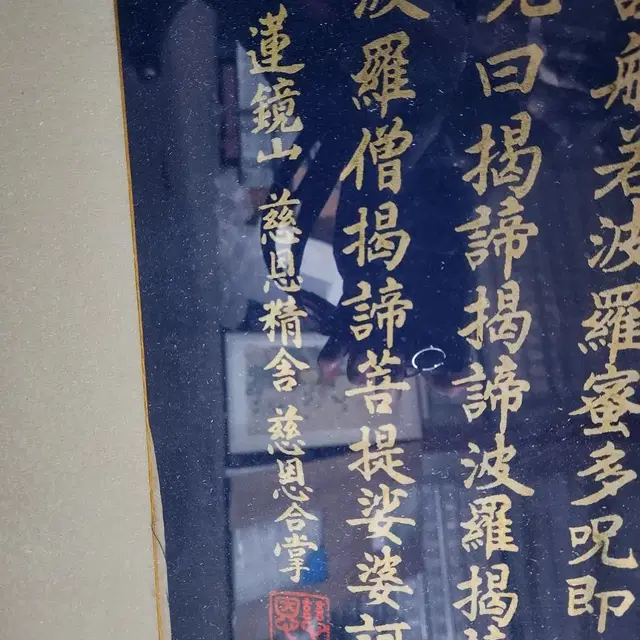 般若波羅蜜多呪即
曰揭諦揭諦波羅揭
波羅僧揭諦菩提娑婆訶
蓮鏡山 慈恩精舍 慈恩合掌